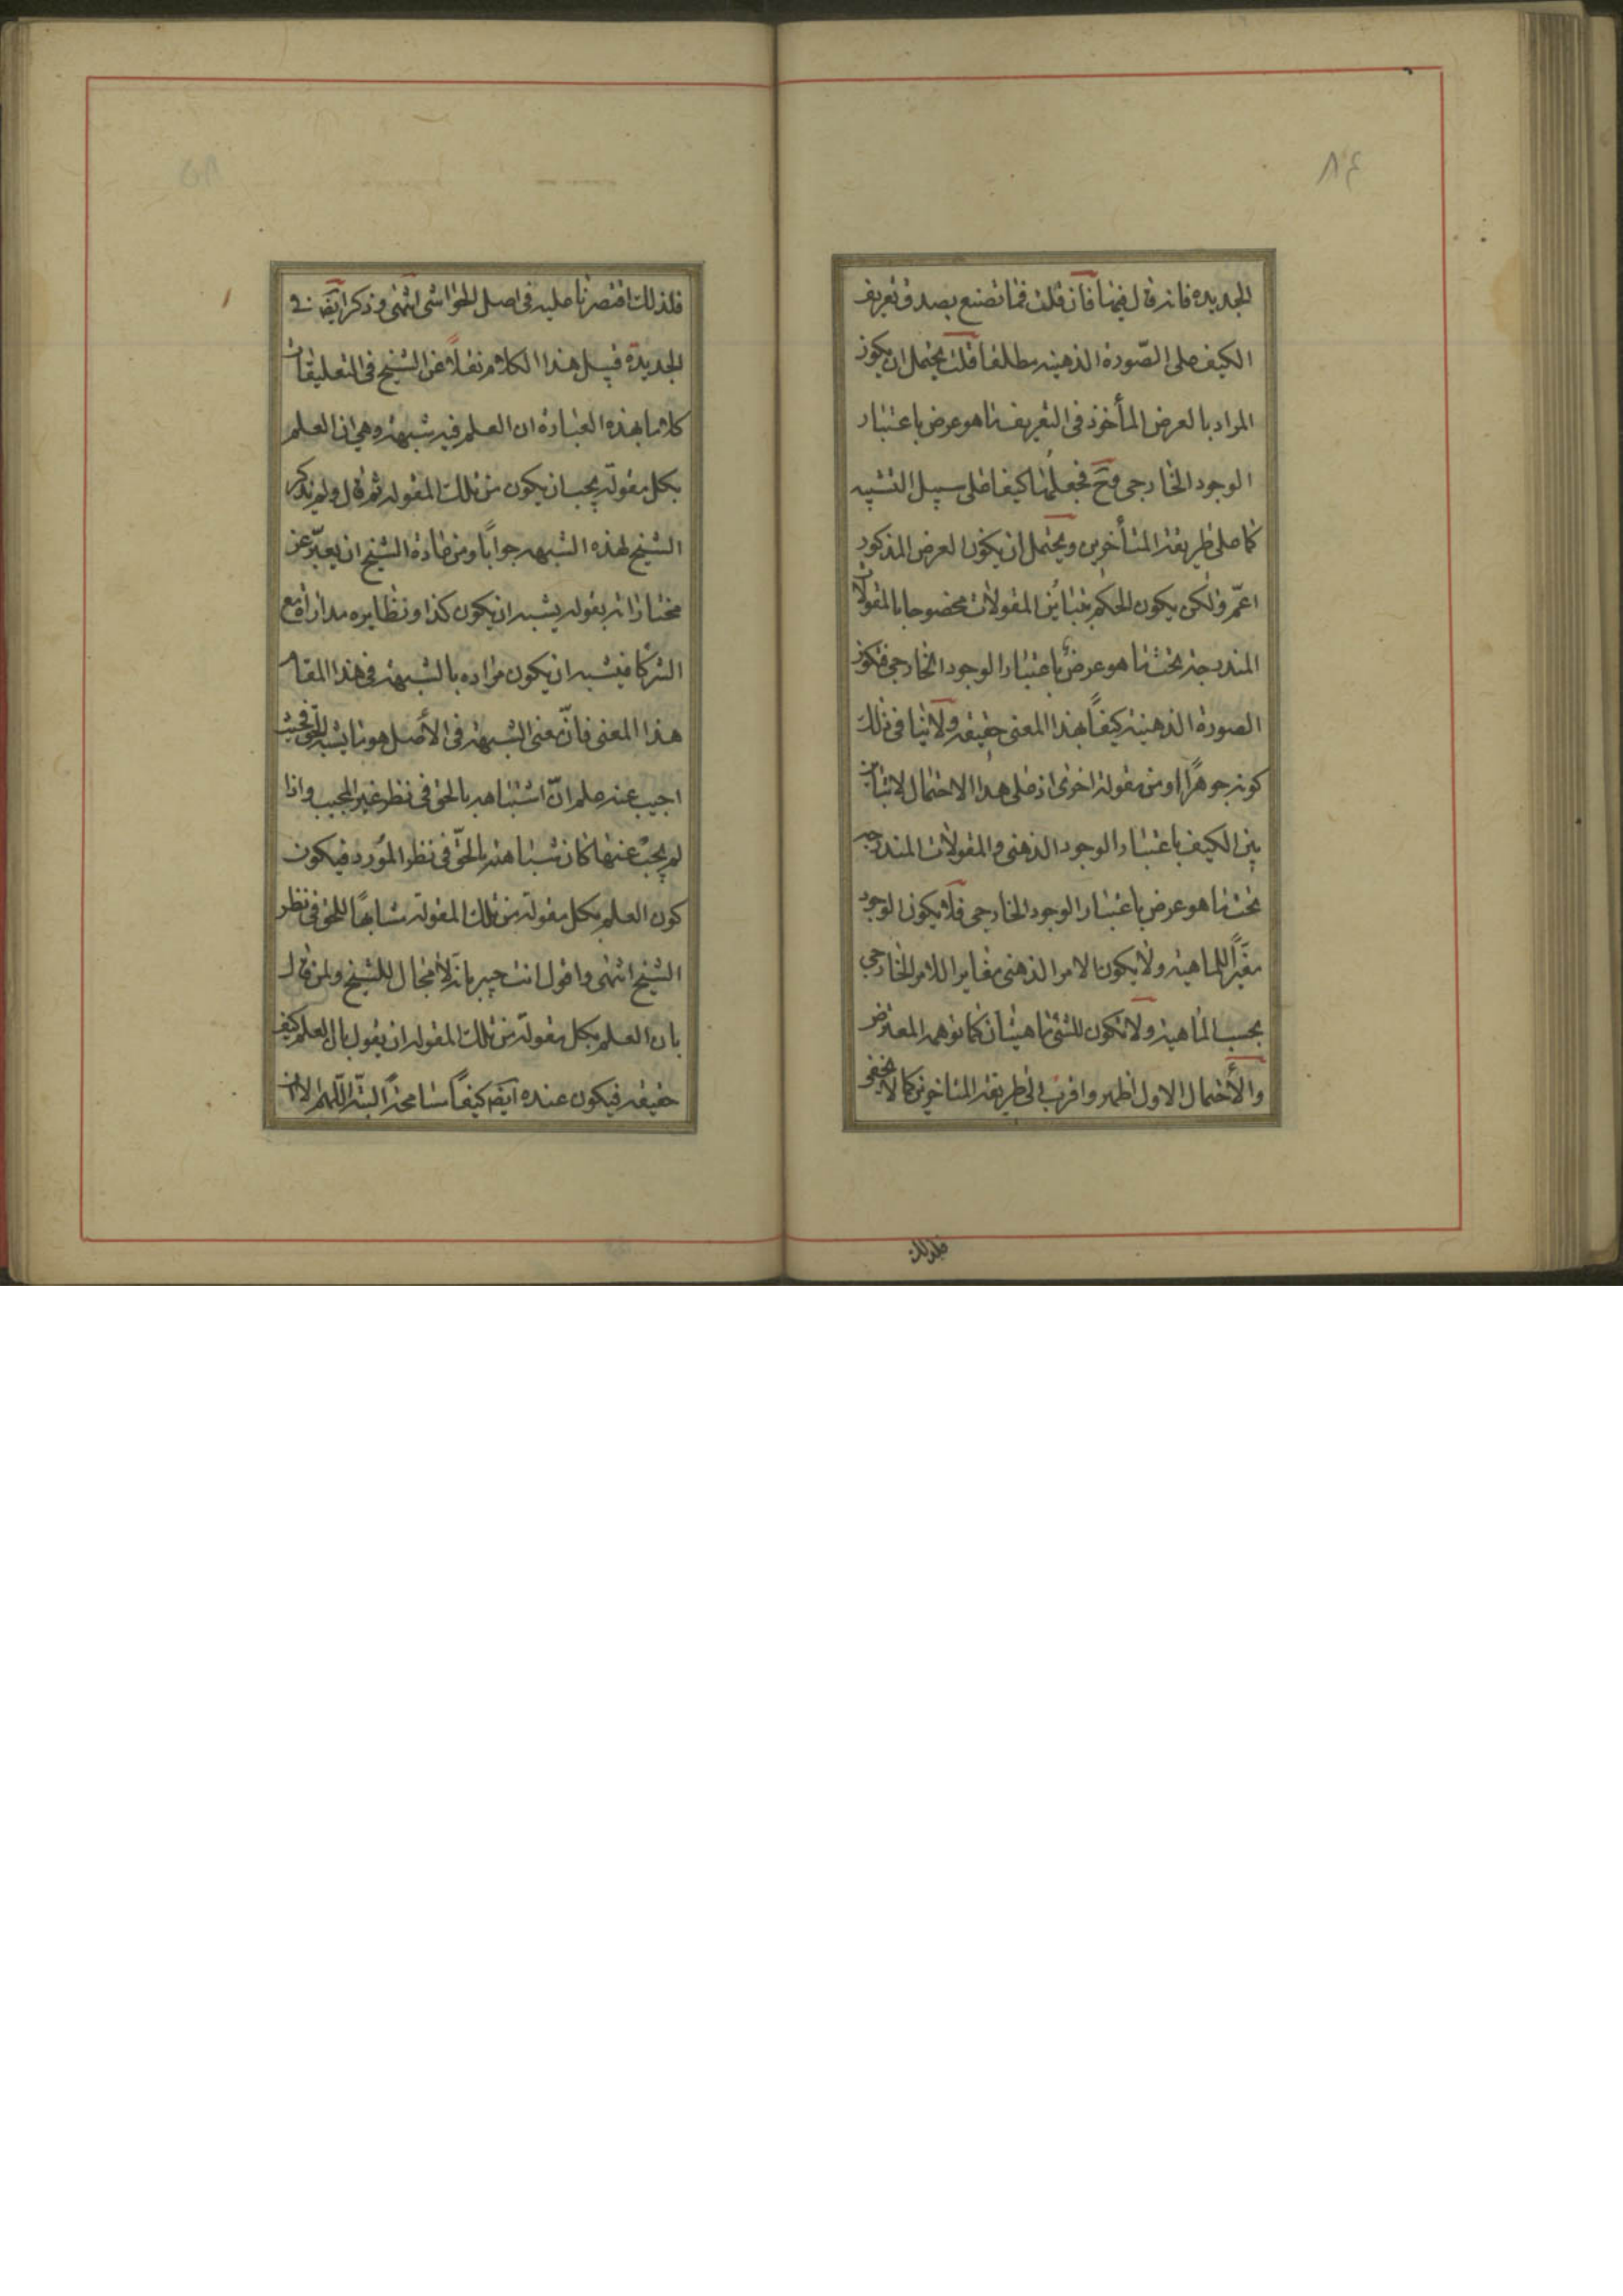 ٨٤
الجديدة فانه قال فيها فان قلت فما تصنع بصدق تعريف
الكيف على الصّورة الذهنيه مطلقا قلت يحتمل ان يكون
المراد بالعرض المأخوذ فى التعريف ما هو عرض باعتبار
الوجود الخارجى وح فجعلها كيفا على سبيل التشبيه
كما على طريقة المتأخرين ويحتمل ان يكون العرض المذكور
اعمّ ولكن يكون الحكم بتباين المقولات مخصوصا بالمقولات
المندرجة تحت ما هو عرض باعتبار الوجود الخارجى فتكون
الصورة الذهنية كيفاً بهذا المعنى حقيقة ولا ينافى ذلك
كونه جوهراً او من مقولة اخرى اذ على هذا الاحتمال لا تباين
بين الكيف باعتبار الوجود الذهنى والمقولات المندرجة
تحت ما هو عرض باعتبار الوجود الخارجى فلا يكون الوجود
مغيّراً للماهية ولا يكون الامر الذهنى مغايرا للامر الخارجي
بحسب الماهية ولا تكون للشئ ماهيتان كما توهمه المعترض
والأحتمال الاول اظهر واقرب الى طريقة المتاخرين كما لا يخفى
فلذلك
٨٥
فلذلك اقتصرنا عليه فى اصل الحواشى انتهى وذكر ايضا فى
الجديدة قبيل هذا الكلام نقلاً عن الشيخ فى التعليقات
كلاما بهذه العبارة ان العلم فيه شبهة وهي ان العلم
بكل مقولة يجب ان يكون من تلك المقولة ثم قال ولم يذكر
الشيخ لهذه الشبهه جواباً ومن عادة الشيخ ان يعبّر عن
مختاراته بقوله يشبه ان يكون كذا ونظايره مداراة مع
الشركا فيشبه ان يكون مراده بالشبهة فى هذا المقام
هذا المعنى فانّ معنى الشبهة فى الأصل هو ما يشبه الحق فحيث
اجيب عنه علم انّ اشتباهه بالحق فى نظر غير المجيب واذا
لم يجب عنها كان شباهته بالحقّ فى نظر المورد فيكون
كون العلم بكل مقولة من تلك المقولة مشابهاً للحق فى نظر
الشيخ انتهى واقول انت خبير بانه لا مجال للشيخ ولمن قال
بان العلم بكل مقولة من تلك المقولة ان يقول بان العلم كيف
حقيقة فيكون عنده ايضا كيفاً مسامحة البتّة اللّهمّ الا ان